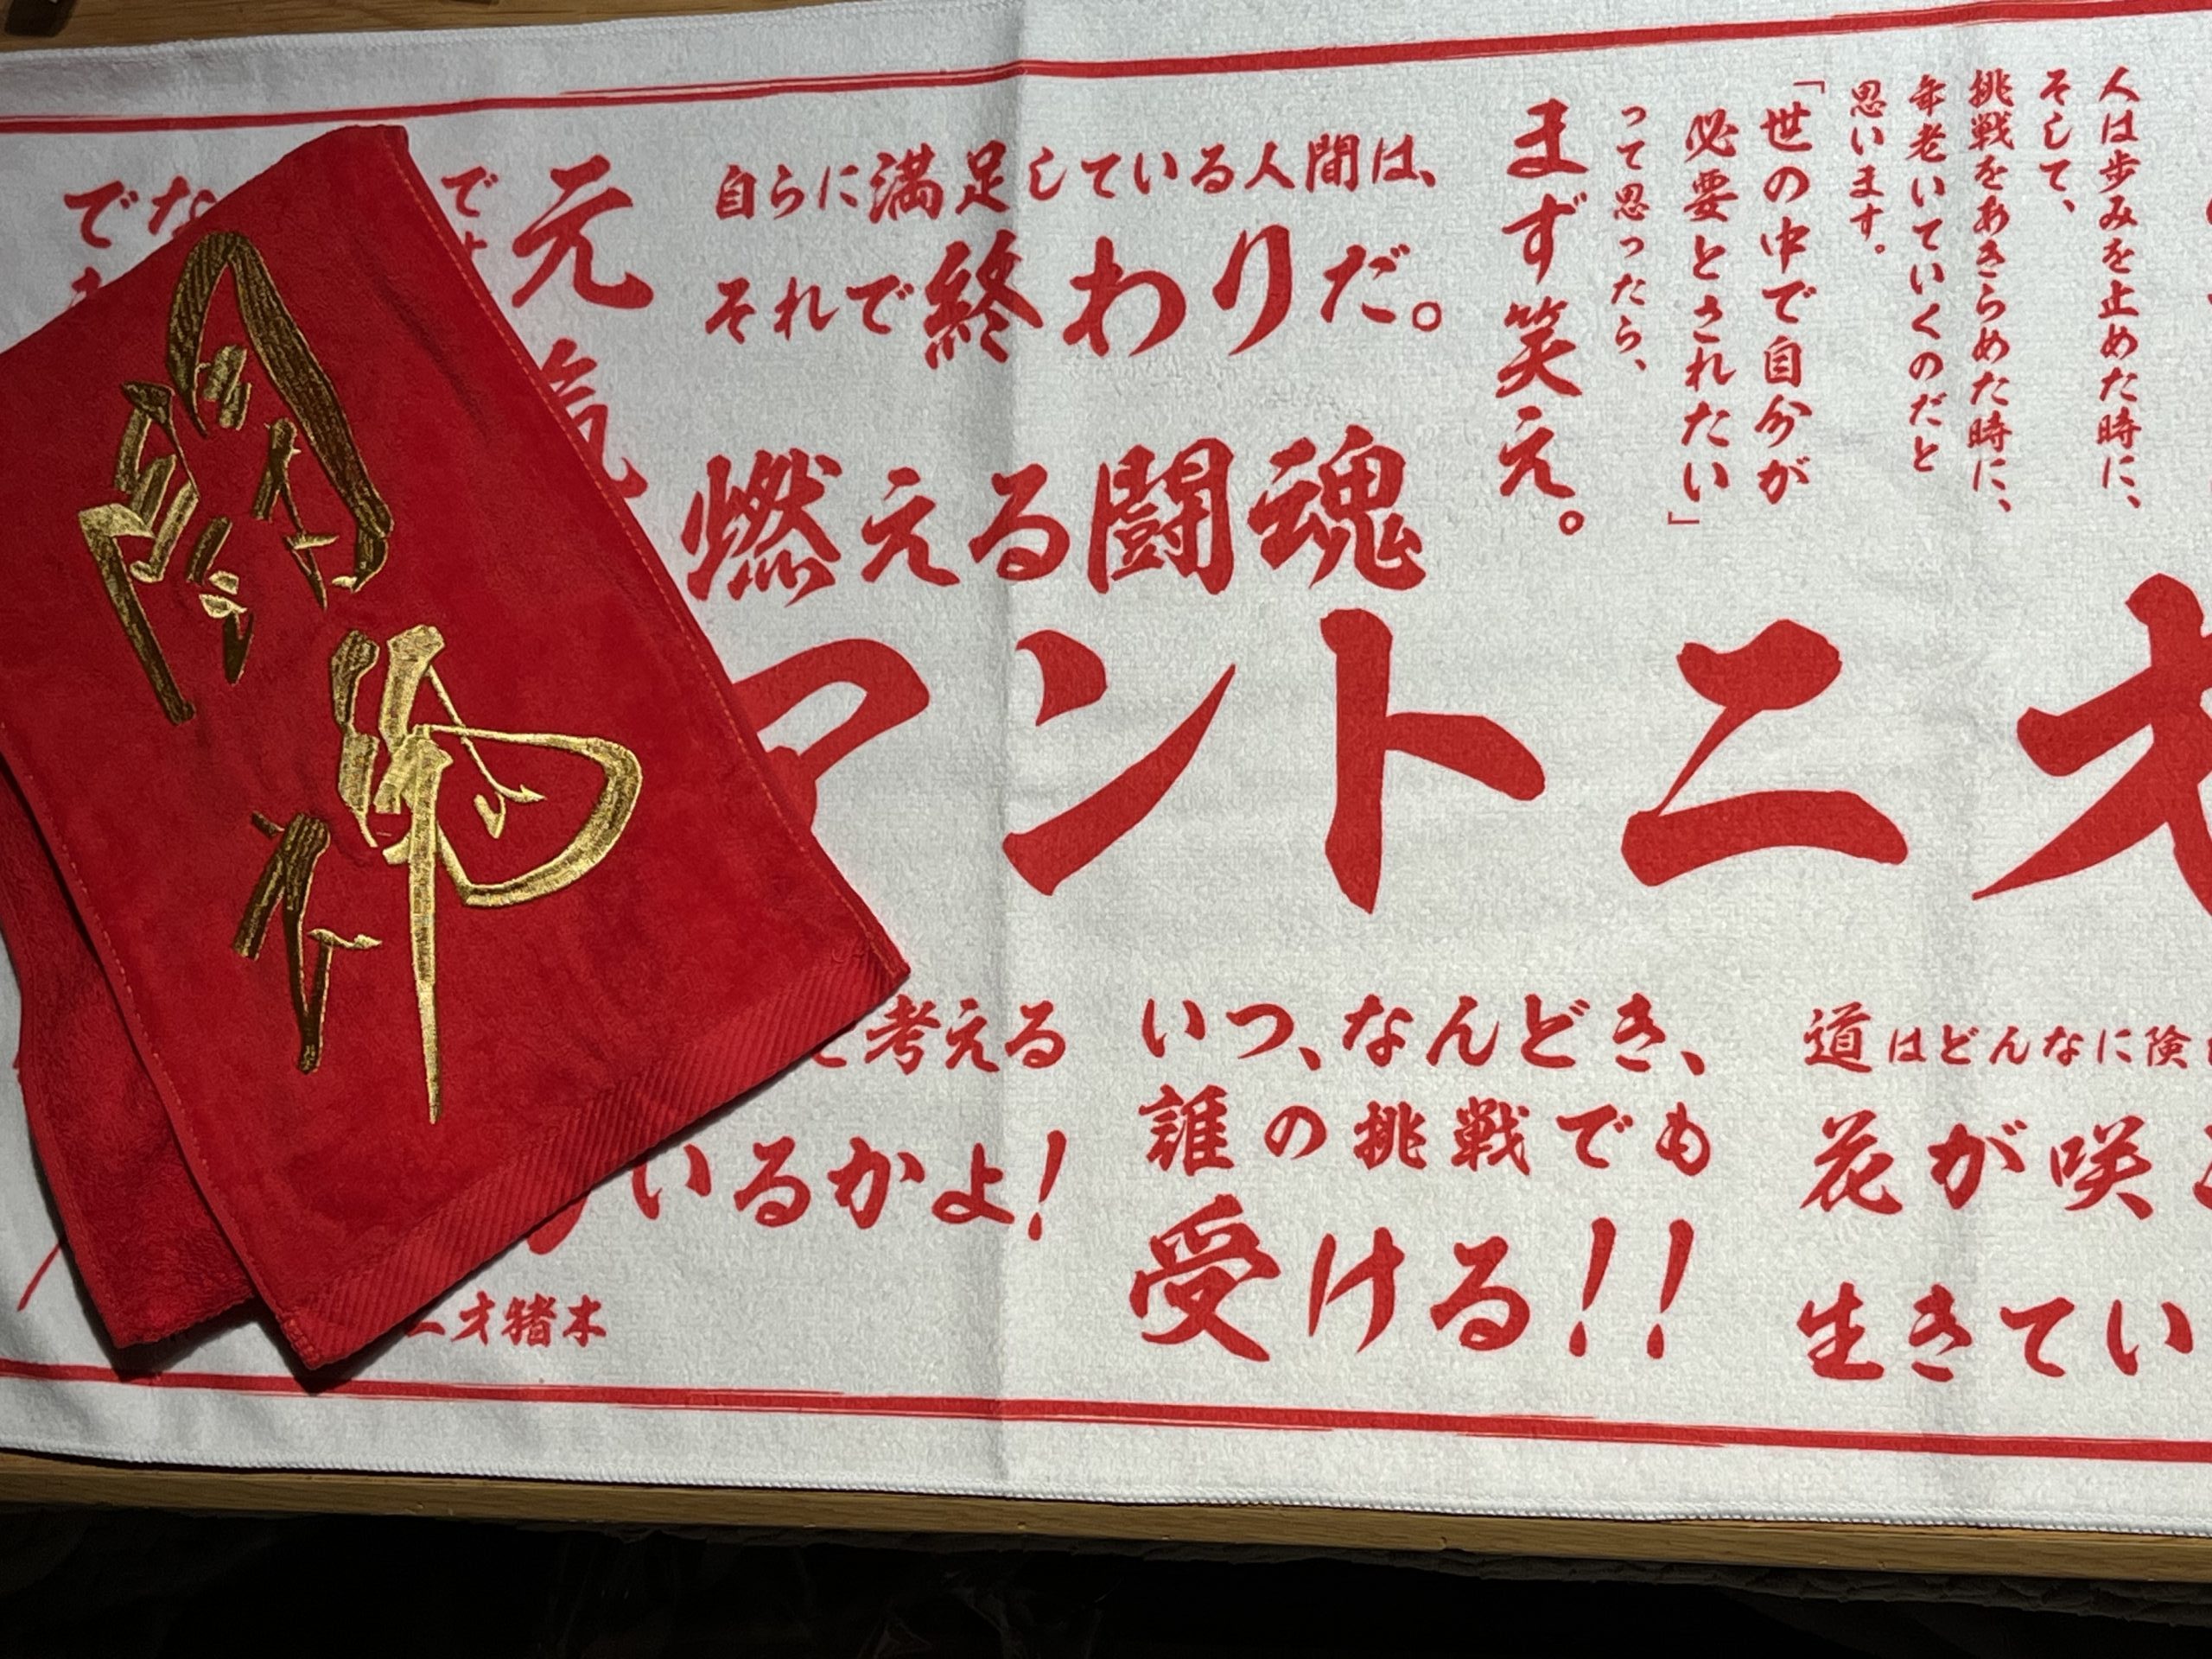 人は歩みを止めた時に、
そして、
挑戦をあきらめた時に、
年老いていくのだと
思います。
「世の中で自分が
必要とされたい」
って思ったら、
まず笑え。
自らに満足している人間は、
それで終わりだ。
元氣
で
でな
燃える闘魂
アントニオ
考える
いるかよ!
ニオ猪木
いつ、なんどき、
誰の挑戦でも
受ける!!
道はどんなに険
花が咲
生きてい
闘魂